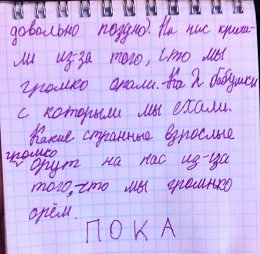 довольно поздно. На нас крича-
ли из-за того, что мы
громко орали. На 2 бабушки
с которыми мы ехали.
Какие странные взрослые
громко
орут на нас из-за
того, что мы громко
орём.
ПОКА